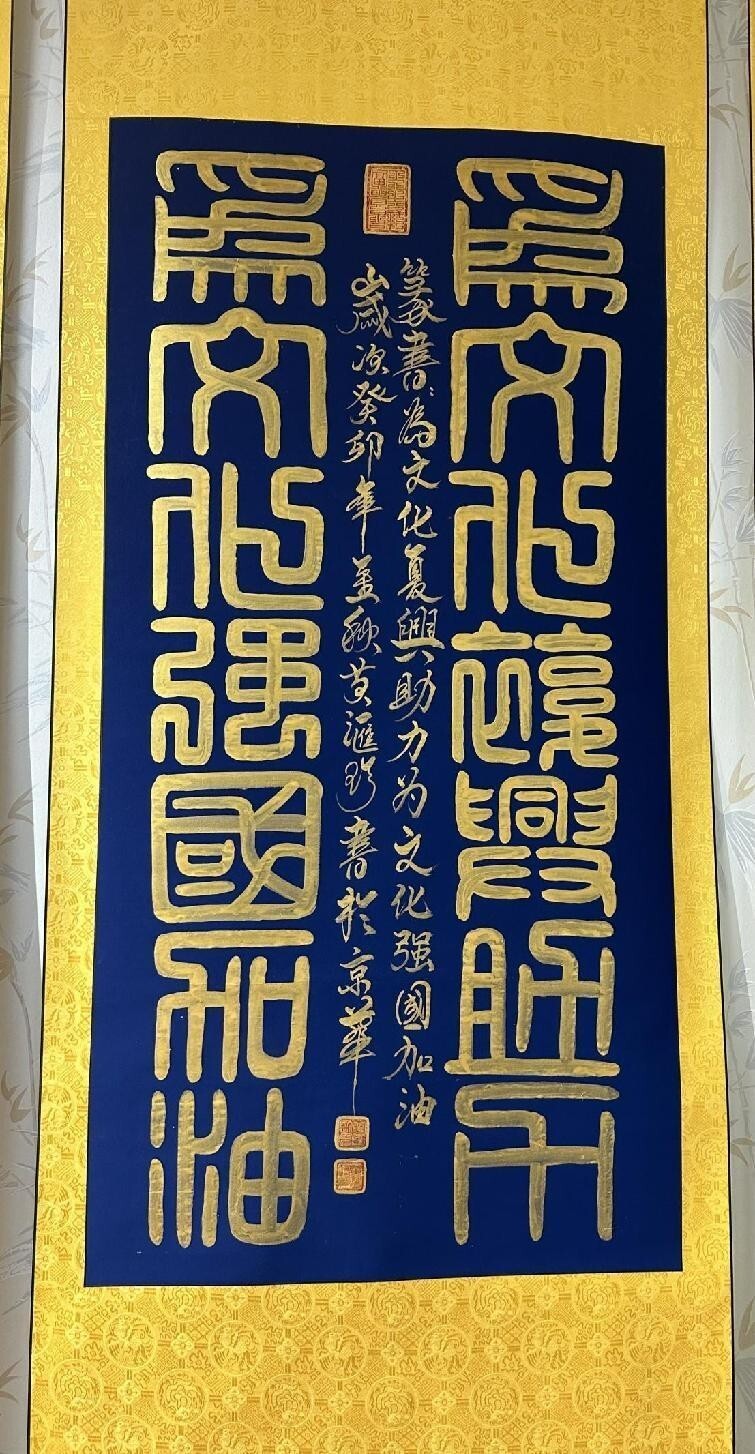 為文化復興助力
篆書：為文化复興助力为文化强國加油
歲次癸卯年孟秋黄滙珍書於京華
為文化強國加油